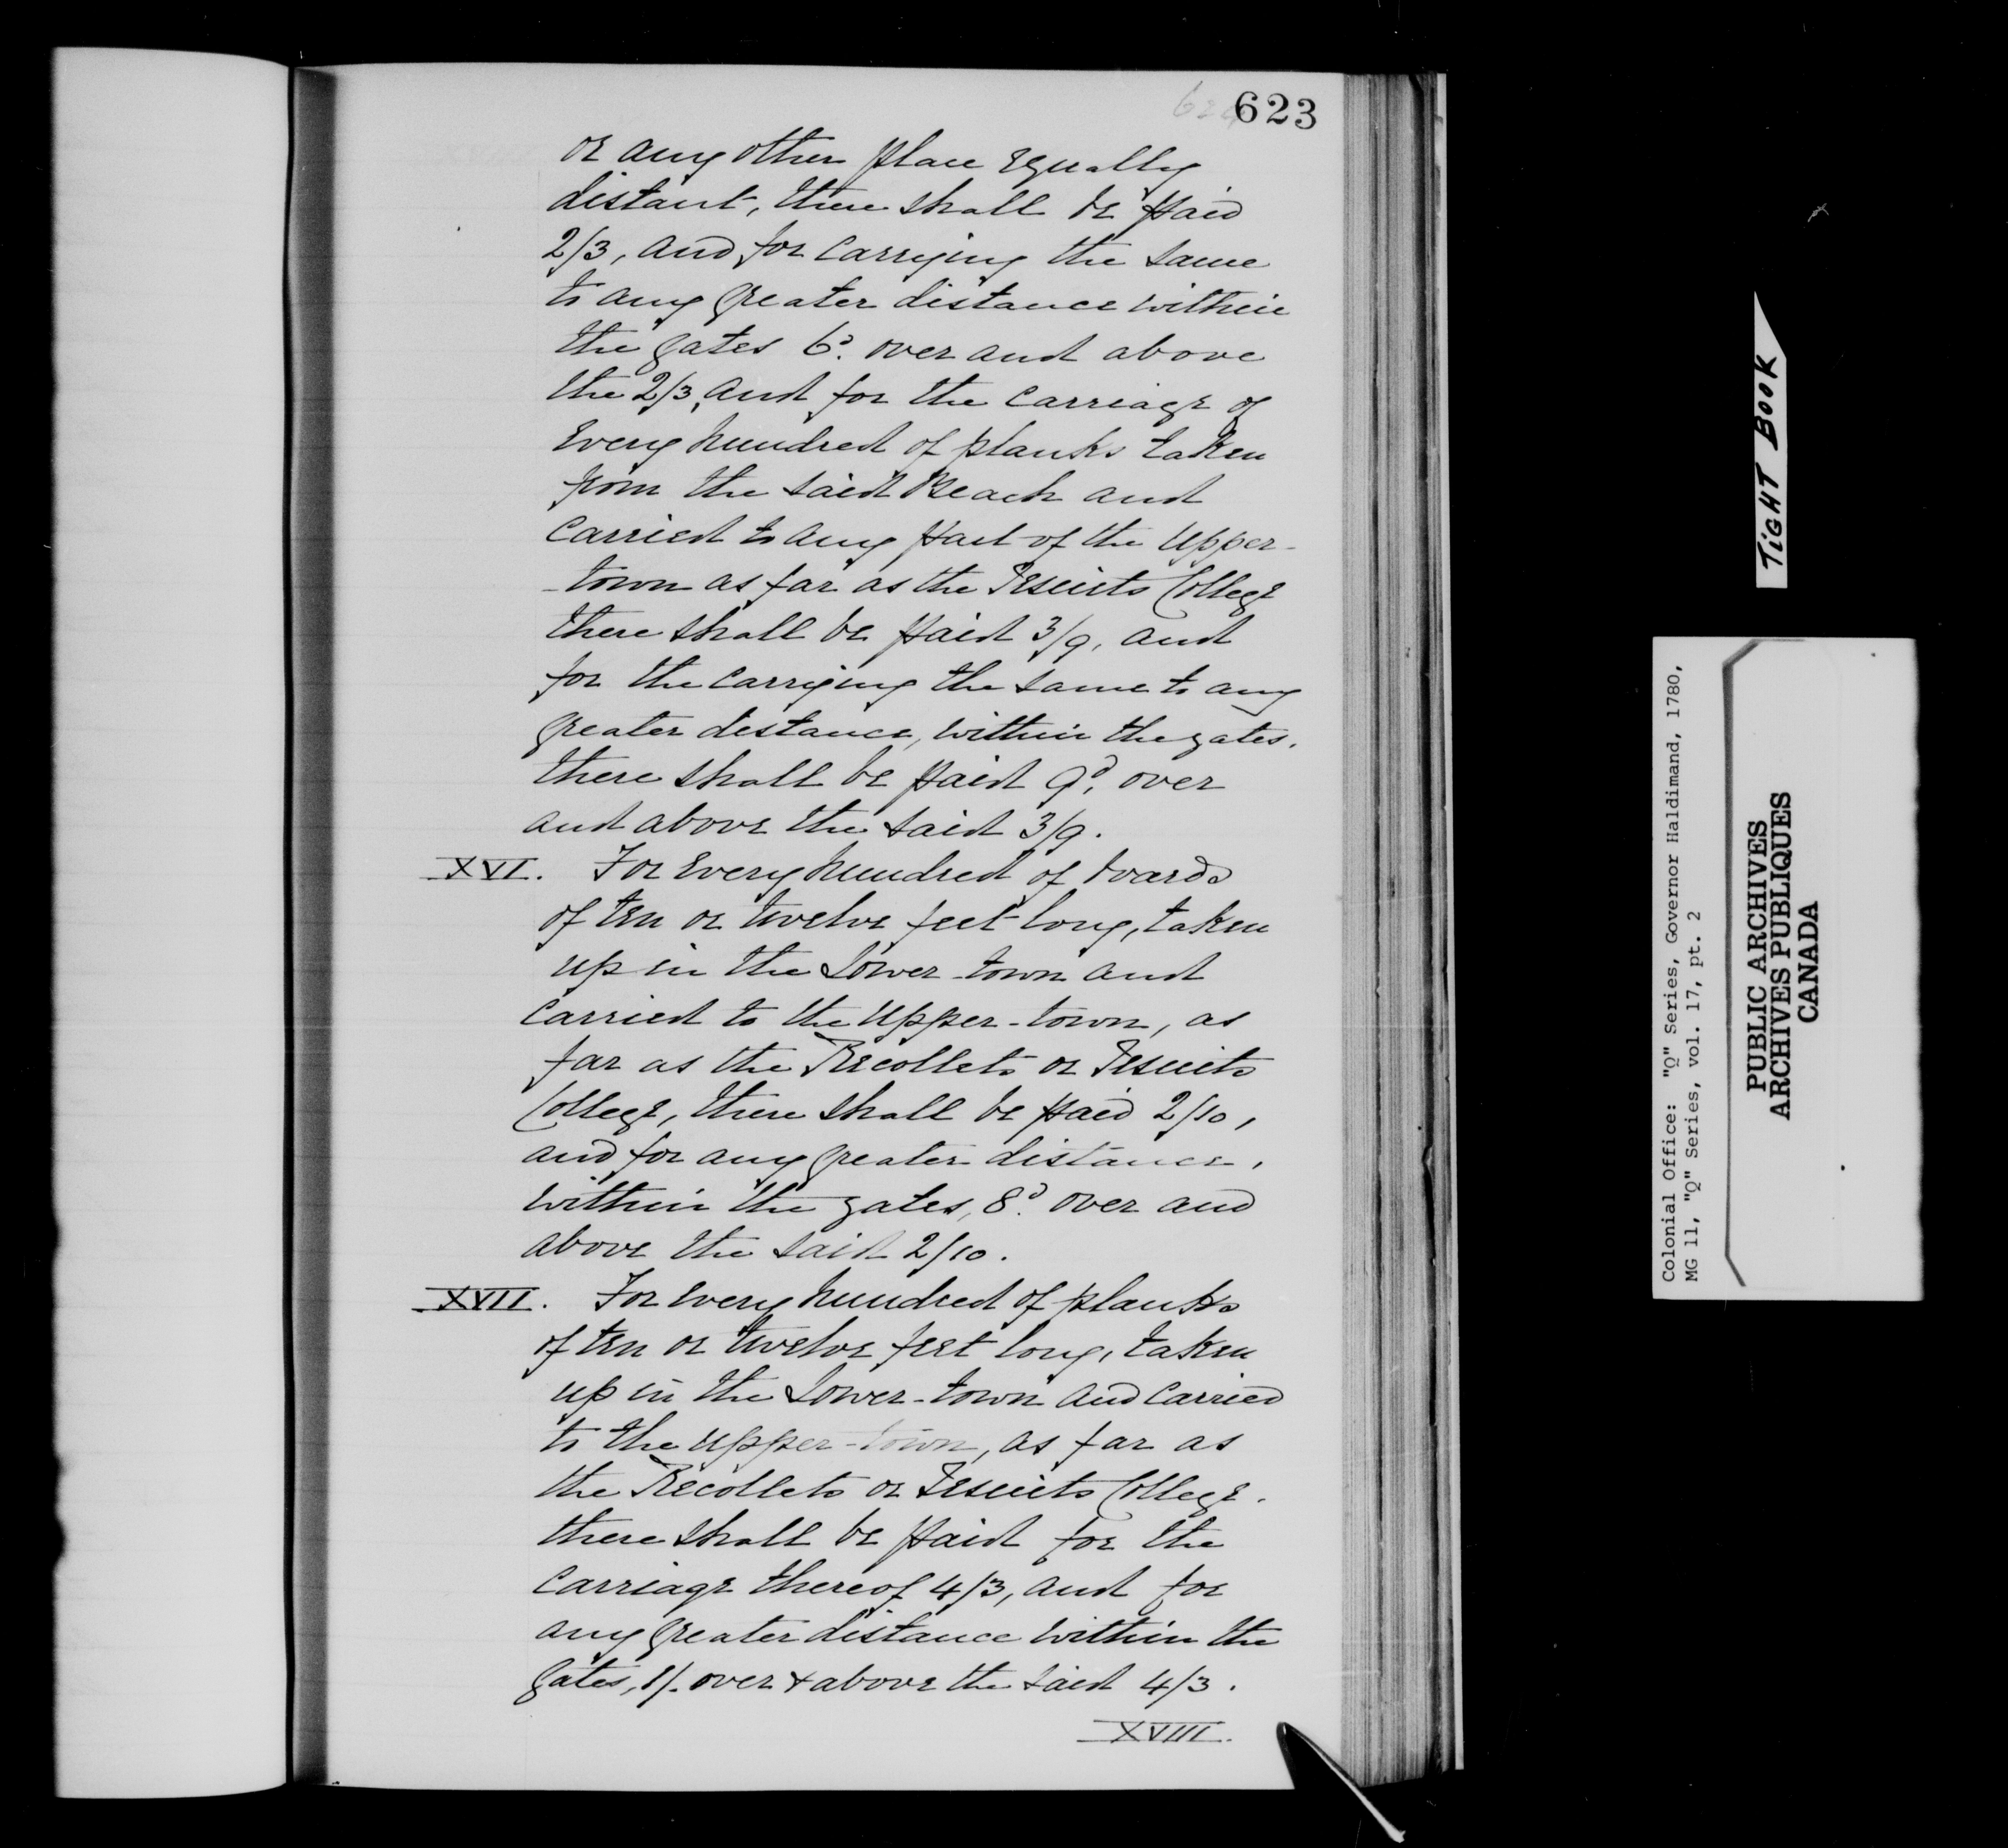 623
or any other place equally
distant, there shall be paid
2/3, and for carrying the same
to any greater distance within
the gates 6d. over and above
the 2/3, and for the carriage of
every hundred of planks taken
from the said Beach and
carried to any part of the Upper-
-town as far as the Jesuits College
there shall be paid 3/9, and
for the carrying the same to any
greater distance, within the gates.
there shall be paid 9d, over
and above the said 3/9.
XVI. For every hundred of boards
of ten or twelve feet long, taken
up in the Lower-town and
carried to the Upper-town, as
far as the Recollets or Jesuits
College, there shall be paid 2/10,
and for any greater distance,
within the gates, 8d. over and
above the said 2/10.
XVII. For every hundred of planks
of ten or twelve feet long, taken
up in the Lower-town and carried
to the upper-town, as far as
the Recollets or Jesuits College.
there shall be paid for the
carriage thereof 4/3, and for
any greater distance within the
gates, 1/. over & above the said 4/3.
XVIII.
TIGHT BOOK
Colonial Office: "Q" Series, Governor Haldimand, 1780,
MG 11, "Q" Series, vol. 17, pt. 2
PUBLIC ARCHIVES
ARCHIVES PUBLIQUES
CANADA